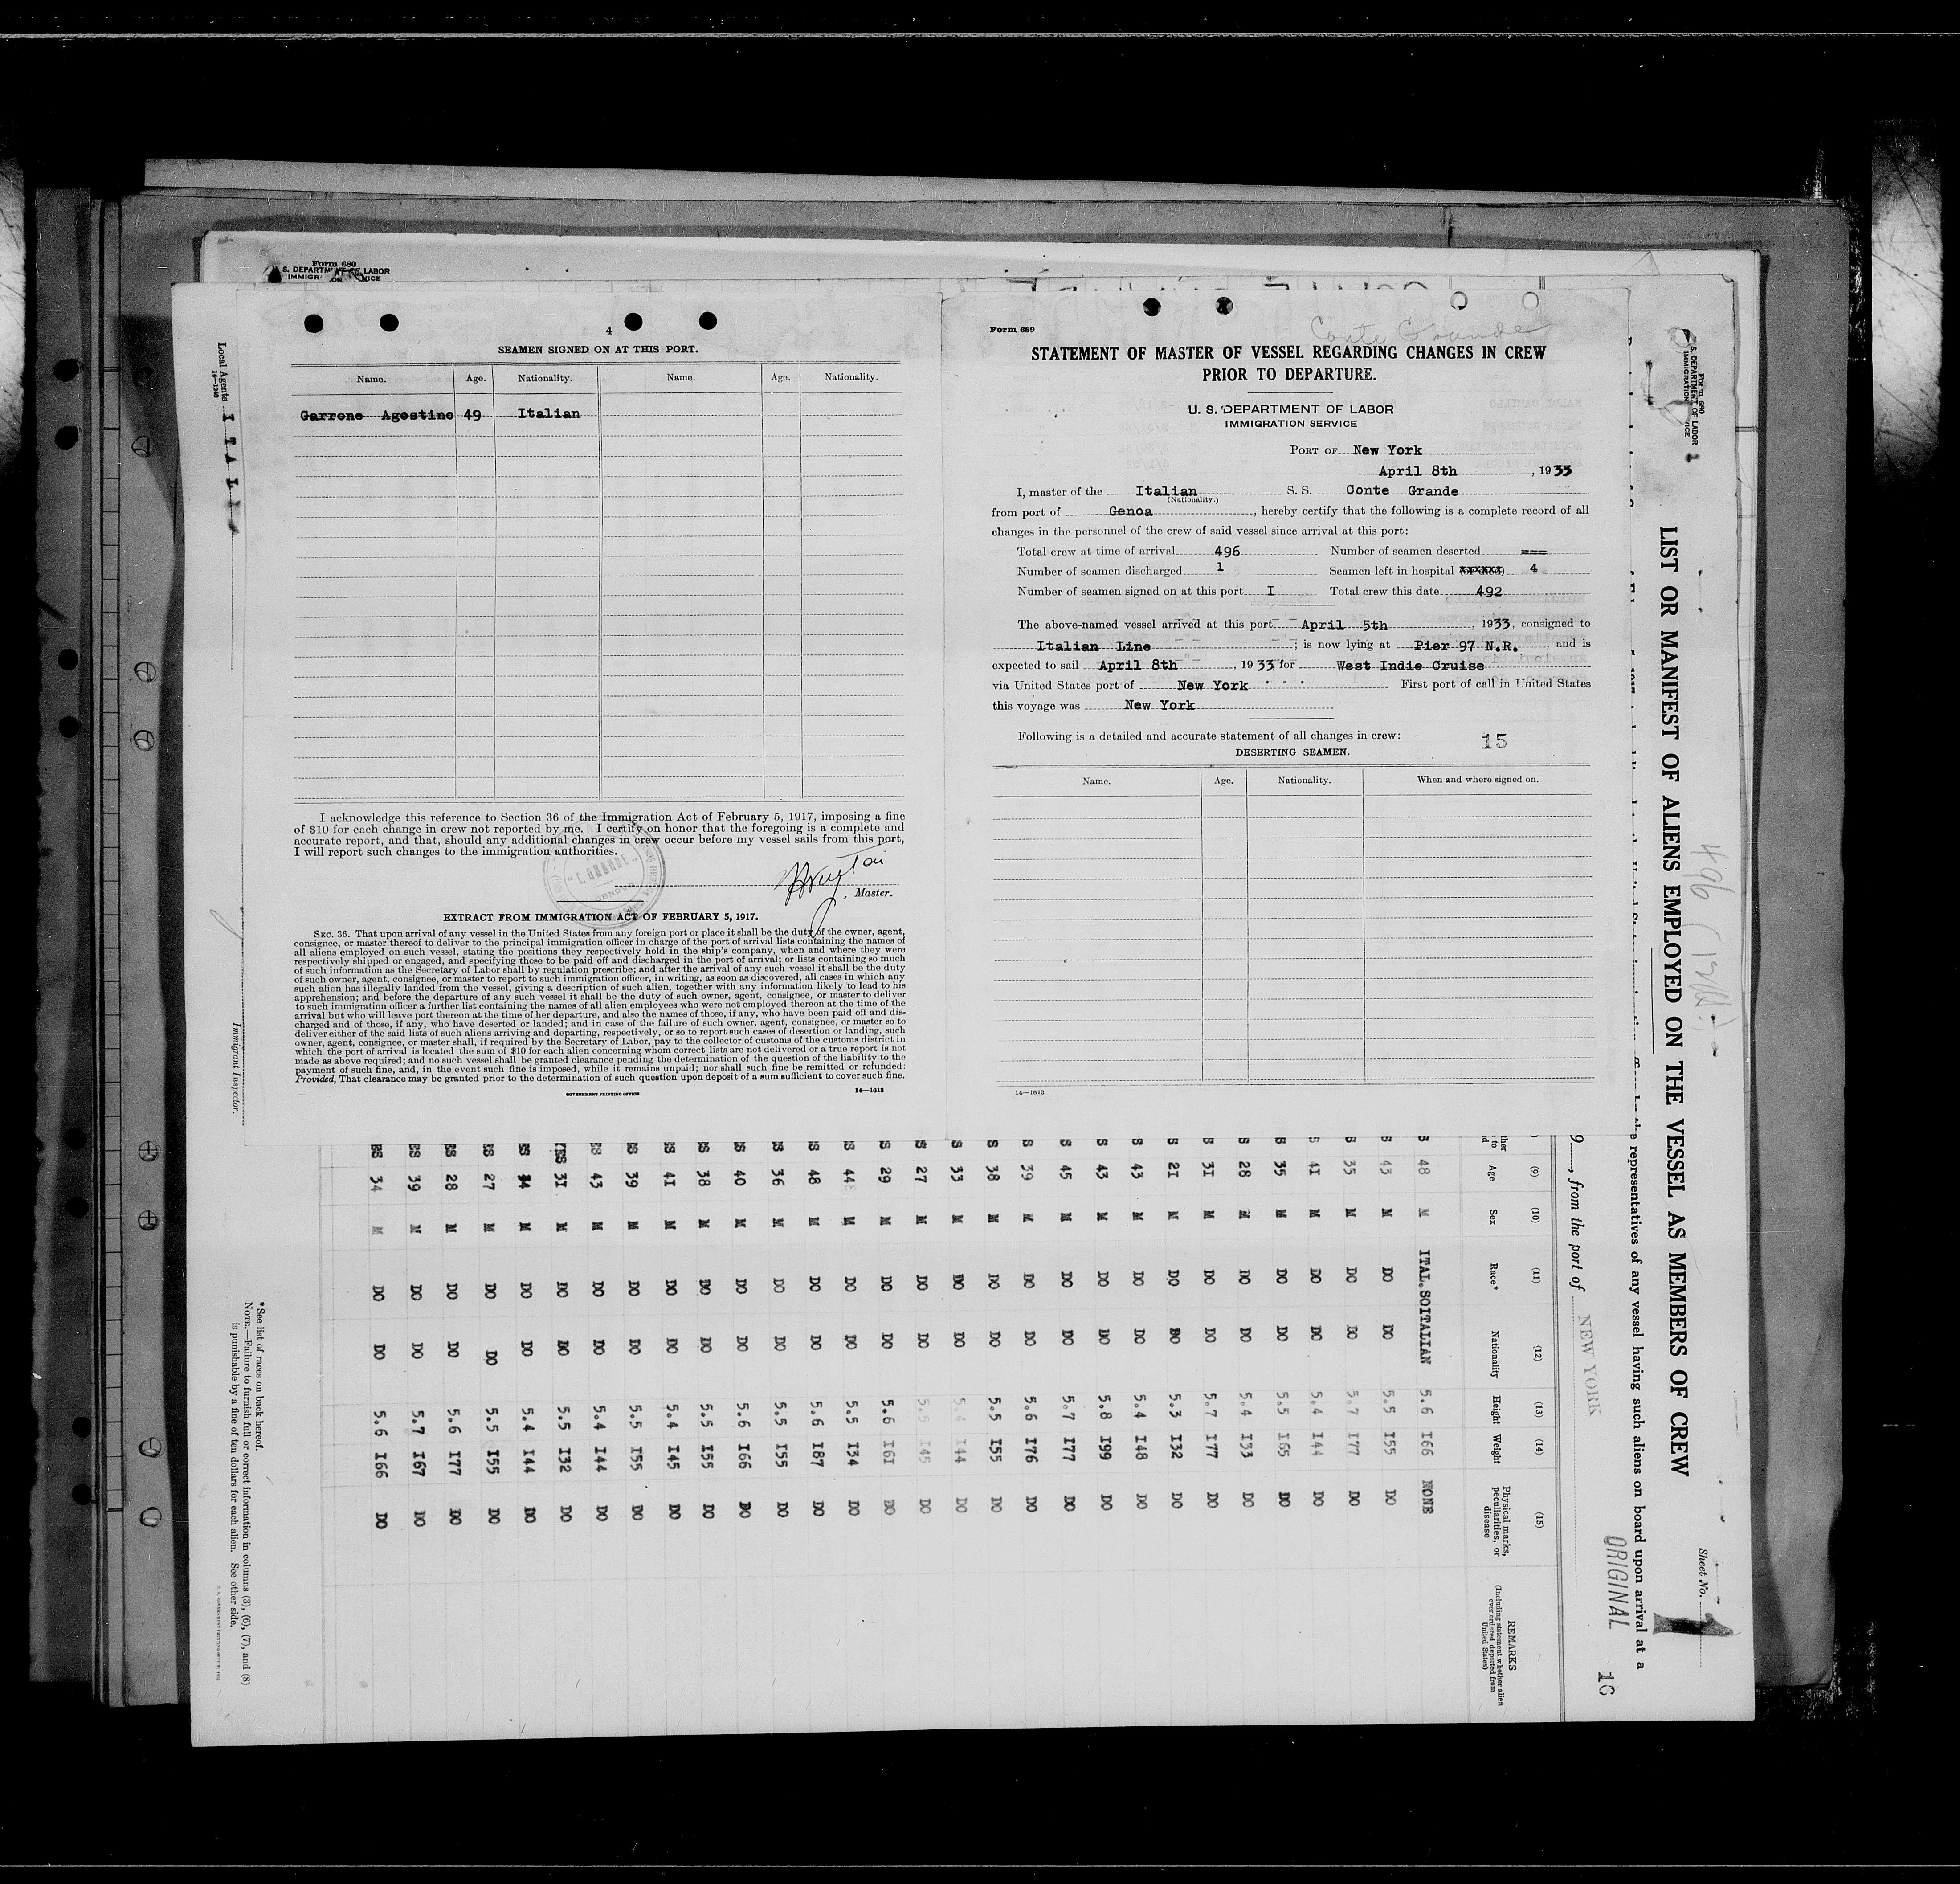 Form 680
S. DEPARTM
LABOR
IMMIGR
ICE
4
SEAMEN SIGNED ON AT THIS PORT.
Name. Age. Nationality. Name. Age. Nationality.
Garrone Agostino 49 Italian
I acknowledge this reference to Section 36 of the Immigration Act of February 5, 1917, imposing a fine
of $10 for each change in crew not reported by me. I certify on honor that the foregoing is a complete and
accurate report, and that, should any additional changes in crew occur before my vessel sails from this port,
I will report such changes to the immigration authorities.
"C. GRANDE"
GENOVA
Master.
EXTRACT FROM IMMIGRATION ACT OF FEBRUARY 5, 1917.
SEC. 36. That upon arrival of any vessel in the United States from any foreign port or place it shall be the duty of the owner, agent,
consignee, or master thereof to deliver to the principal immigration officer in charge of the port of arrival lists containing the names of
all aliens employed on such vessel, stating the positions they respectively hold in the ship's company, when and where they were
respectively shipped or engaged, and specifying those to be paid off and discharged in the port of arrival; or lists containing so much
of such information as the Secretary of Labor shall by regulation prescribe; and after the arrival of any such vessel it shall be the duty
of such owner, agent, consignee, or master to report to such immigration officer, in writing, as soon as discovered, all cases in which any
such alien has illegally landed from the vessel, giving a description of such alien, together with any information likely to lead to his
apprehension; and before the departure of any such vessel it shall be the duty of such owner, agent, consignee, or master to deliver
to such immigration officer a further list containing the names of all alien employees who were not employed thereon at the time of the
arrival but who will leave port thereon at the time of her departure, and also the names of those, if any, who have been paid off and dis-
charged and of those, if any, who have deserted or landed; and in case of the failure of such owner, agent, consignee, or master so to
deliver either of the said lists of such aliens arriving and departing, respectively, or so to report such cases of desertion or landing, such
owner, agent, consignee, or master shall, if required by the Secretary of Labor, pay to the collector of customs of the customs district in
which the port of arrival is located the sum of $10 for each alien concerning whom correct lists are not delivered or a true report is not
made as above required; and no such vessel shall be granted clearance pending the determination of the question of the liability to the
payment of such fine, and, in the event such fine is imposed, while it remains unpaid; nor shall such fine be remitted or refunded:
Provided, That clearance may be granted prior to the determination of such question upon deposit of a sum sufficient to cover such fine.
GOVERNMENT PRINTING OFFICE
14—1613
Form 689
Conte Grande
STATEMENT OF MASTER OF VESSEL REGARDING CHANGES IN CREW
PRIOR TO DEPARTURE.
U. S. DEPARTMENT OF LABOR
IMMIGRATION SERVICE
PORT OF New York
April 8th, 1933
I, master of the Italian S. S. Conte Grande
(Nationality.)
from port of Genoa, hereby certify that the following is a complete record of all
changes in the personnel of the crew of said vessel since arrival at this port:
Total crew at time of arrival 496 Number of seamen deserted ===
Number of seamen discharged 1 Seamen left in hospital 4
Number of seamen signed on at this port I Total crew this date 492
The above-named vessel arrived at this port April 5th, 1933, consigned to
Italian Line; is now lying at Pier 97 N.R., and is
expected to sail April 8th, 1933 for West Indie Cruise
via United States port of New York First port of call in United States
this voyage was New York
Following is a detailed and accurate statement of all changes in crew: 15
DESERTING SEAMEN.
Name. Age. Nationality. When and where signed on.
14—1613
Local Agents ITAL
14—1240
Immigrant Inspector.
Form 680
S. DEPARTMENT OF LABOR
Sheet No. 1
LIST OR MANIFEST OF ALIENS EMPLOYED ON THE VESSEL AS MEMBERS OF CREW
496
representatives of any vessel having such aliens on board upon arrival at a
ORIGINAL
9, from the port of NEW YORK
16
(9) (10) (11) (12) (13) (14) (15)
Age Sex Race* Nationality Height Weight Physical marks, peculiarities, or disease REMARKS
(Including statement whether alien ever ordered deported from United States)
S 48 M ITAL.SO ITALIAN 5.6 166 NONE
S 43 M DO DO 5.5 I55 DO
S 35 M DO DO 5.7 I77 DO
S 4I M DO DO 5.4 I44 DO
S 35 M DO DO 5.5 I65 DO
S 28 M DO DO 5.4 I33 DO
S 3I M DO DO 5.7 I77 DO
S 2I M DO DO 5.3 I32 DO
S 43 M DO DO 5.4 I48 DO
S 43 M DO DO 5.8 I99 DO
S 45 M DO DO 5.7 I77 DO
S 39 M DO DO 5.6 I76 DO
S 38 M DO DO 5.5 I55 DO
S 33 M DO DO 5.4 I44 DO
S 27 M DO DO 5.5 I45 DO
S 29 M DO DO 5.6 I6I DO
S 44 M DO DO 5.5 I34 DO
S 48 M DO DO 5.6 I87 DO
S 36 M DO DO 5.5 I55 DO
S 40 M DO DO 5.6 I66 DO
S 38 M DO DO 5.5 I55 DO
S 4I M DO DO 5.4 I45 DO
S 39 M DO DO 5.5 I55 DO
S 43 M DO DO 5.4 I44 DO
S 3I M DO DO 5.5 I32 DO
S 34 M DO DO 5.4 I44 DO
S 27 M DO DO 5.5 I55 DO
S 28 M DO DO 5.6 I77 DO
S 39 M DO DO 5.7 I67 DO
S 34 M DO DO 5.6 I66 DO
*See list of races on back hereof.
NOTE.—Failure to furnish full or correct information in columns (3), (6), (7), and (8)
is punishable by a fine of ten dollars for each alien. See other side.